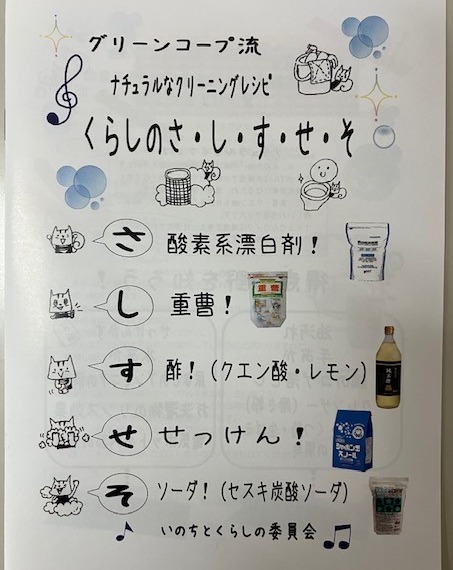 グリーンコープ流
ナチュラルなクリーニングレシピ
くらしのさ・し・す・せ・そ
さ 酸素系漂白剤!
し 重曹!
重曹
す 酢!(クエン酸・レモン)
純米酢
せ せっけん!
シャボン玉
スノール
そ ソーダ!(セスキ炭酸ソーダ)
いのちとくらしの委員会